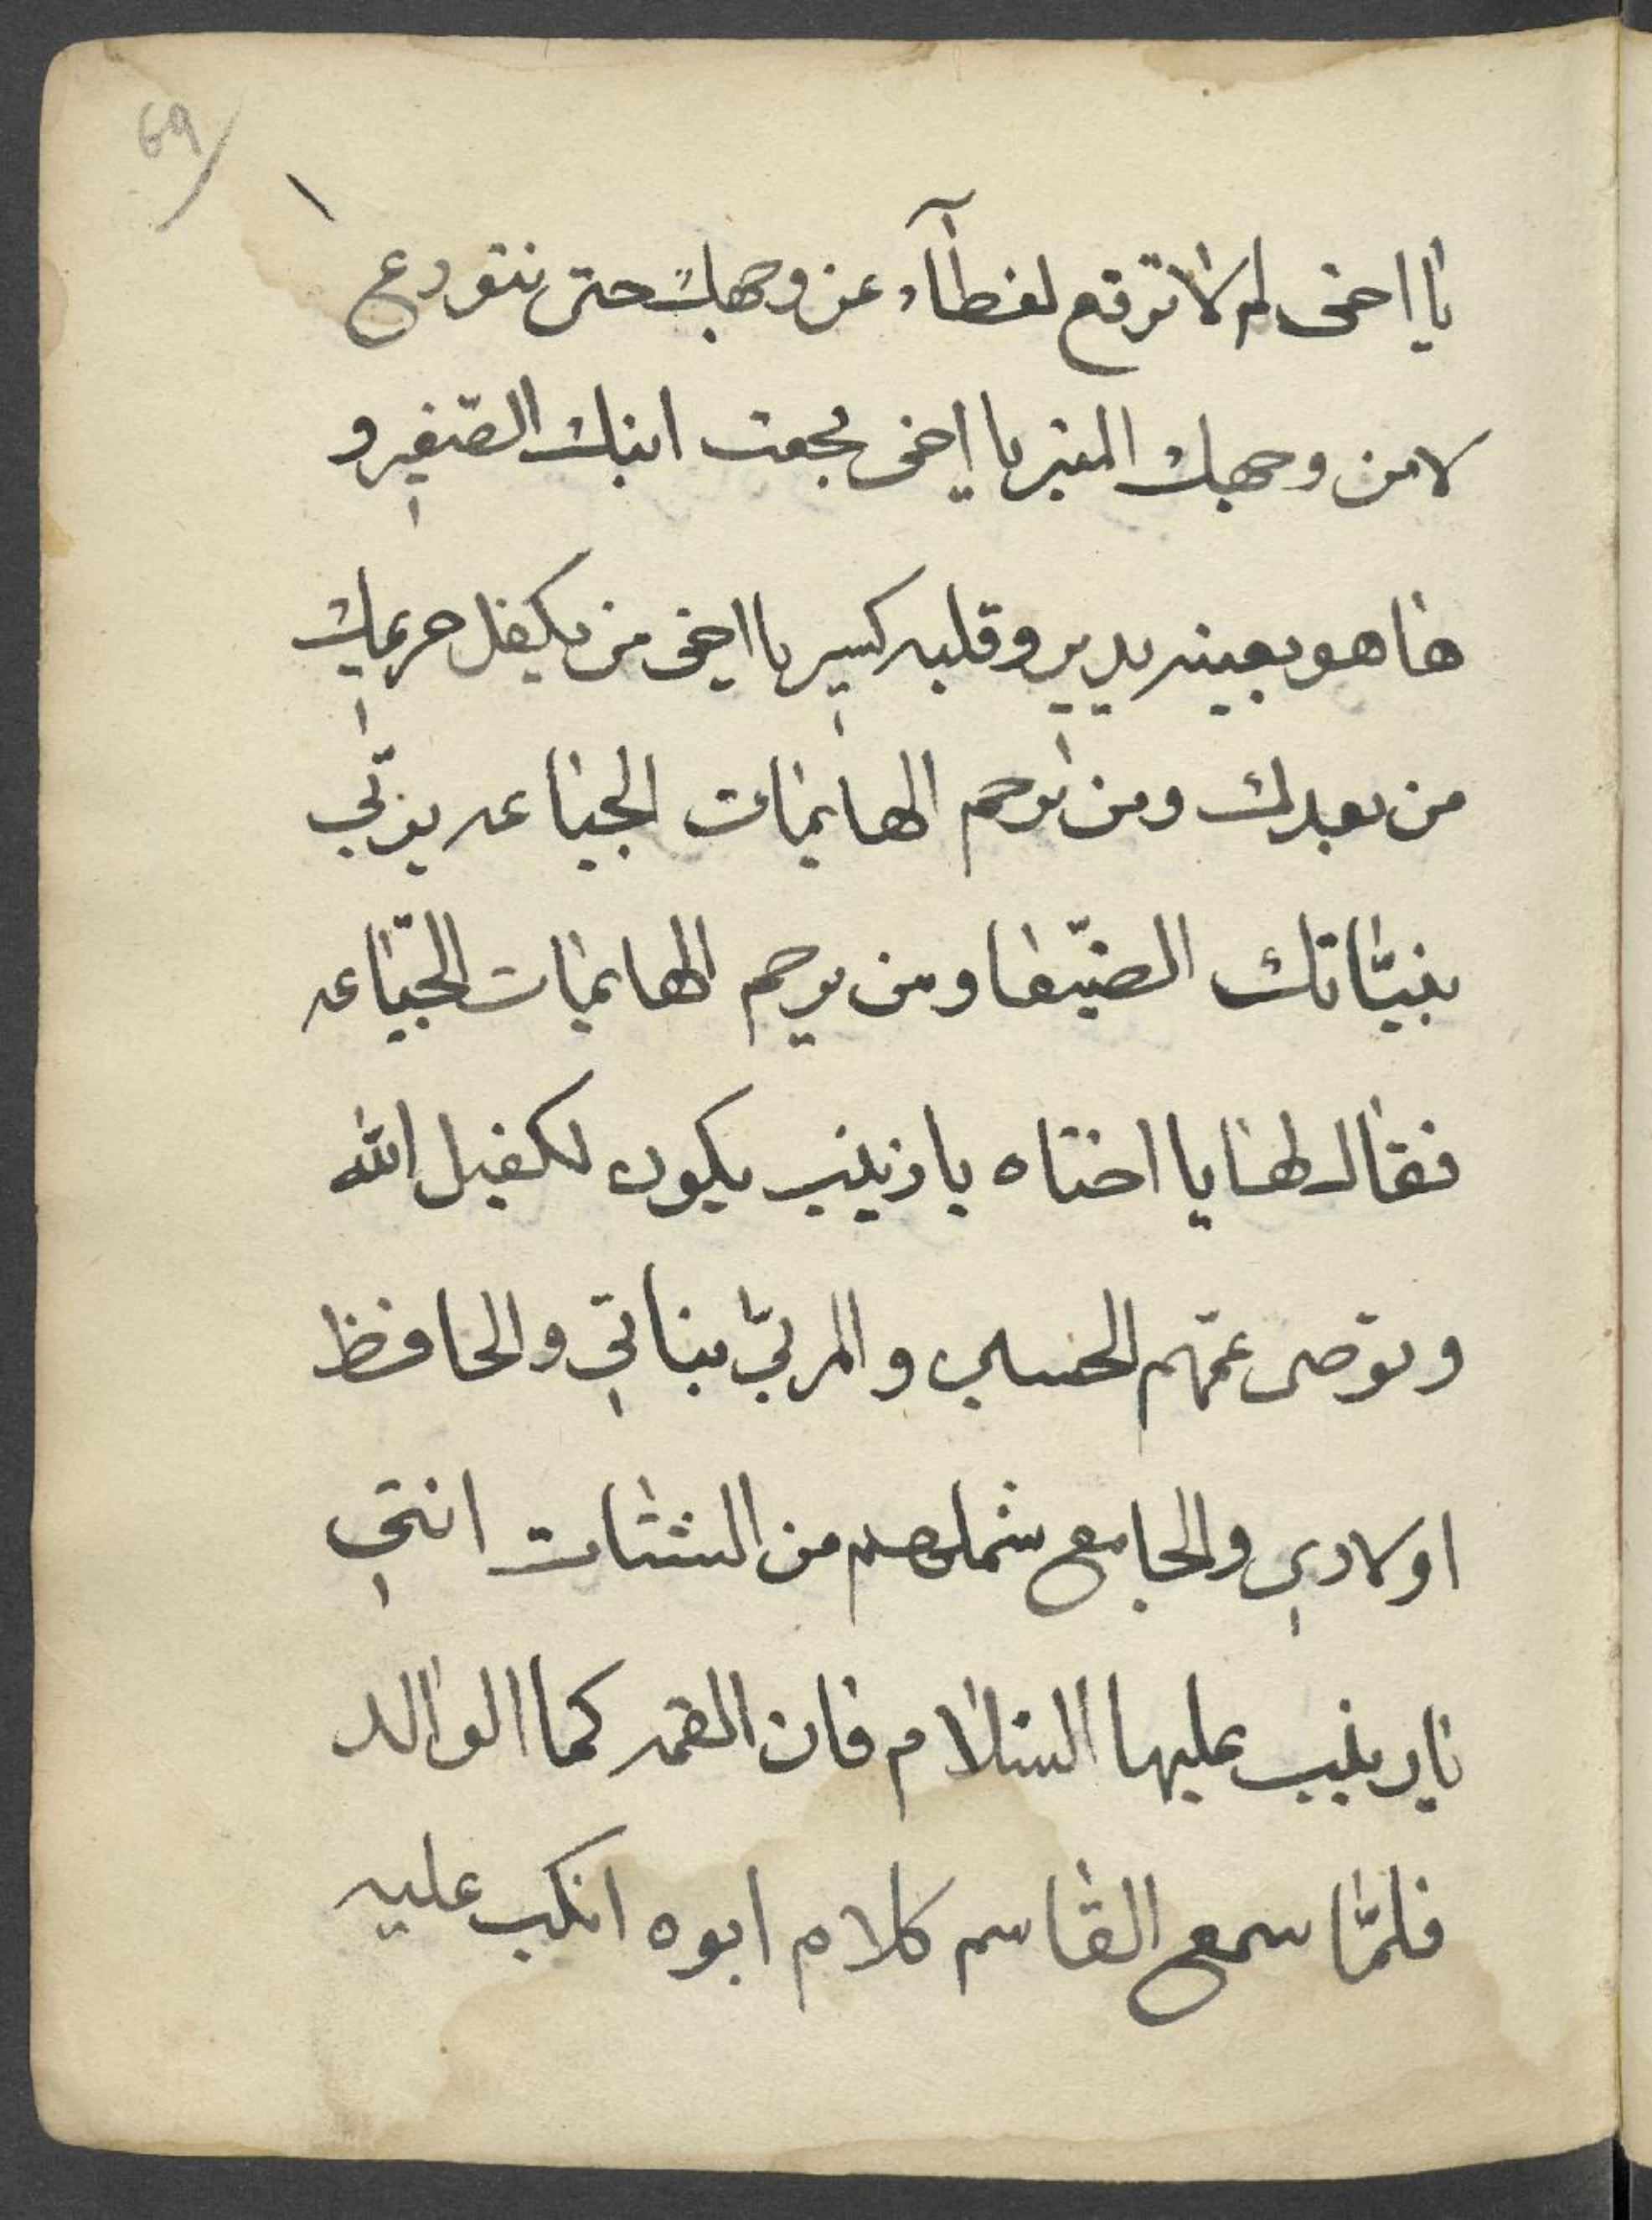 69
يا اخى لم لا ترفع لغطآء عن وجهك حتى نتودع
لامن وجهك المنير يا اخى بجعت ابنك الصغير و
ها هو بعينه يدير وقلبه كسير يا اخى من يكفل حريمك
من بعدك ومن يرحم الهايمات الجياعه يربّي
بنيّاتك الضيّعا ومن يرحم الهايمات الجيّاعه
فقال لها يا اختاه يا زينب يكون لكفيل الله
ويوصى عمّهم الحسين والمربّي بناتي والحافظ
اولادي والجامع شملهم من الشتات انتي
يا زينب عليها السلام فان العمه كما الوالد
فلمّا سمع القاسم كلام ابوه انكب عليه